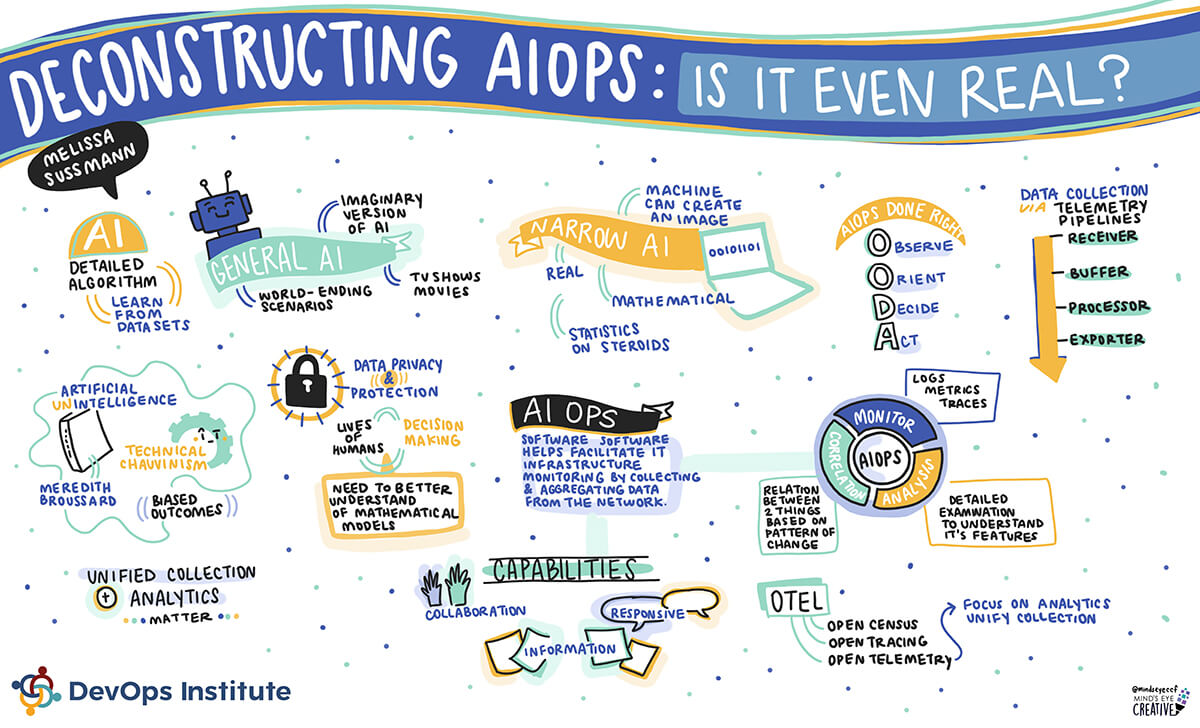 DECONSTRUCTING AIOPS: IS IT EVEN REAL?
MELISSA
SUSSMANN
AI
DETAILED
ALGORITHM
LEARN
FROM
DATA SETS
GENERAL AI
IMAGINARY
VERSION
OF AI
TV SHOWS
MOVIES
WORLD-ENDING
SCENARIOS
NARROW AI
MACHINE
CAN CREATE
AN IMAGE
00101101
REAL
MATHEMATICAL
STATISTICS
ON STEROIDS
AIOPS DONE RIGHT
OBSERVE
ORIENT
DECIDE
ACT
DATA COLLECTION
VIA TELEMETRY
PIPELINES
RECEIVER
BUFFER
PROCESSOR
EXPORTER
ARTIFICIAL
UNINTELLIGENCE
TECHNICAL
CHAUVINISM
MEREDITH
BROUSSARD
BIASED
OUTCOMES
DATA PRIVACY
&
PROTECTION
LIVES
OF
HUMANS
DECISION
MAKING
NEED TO BETTER
UNDERSTAND
OF MATHEMATICAL
MODELS
AI OPS
SOFTWARE SOFTWARE
HELPS FACILITATE IT
INFRASTRUCTURE
MONITORING BY COLLECTING
& AGGREGATING DATA
FROM THE NETWORK.
LOGS
METRICS
TRACES
MONITOR
AIOPS
CORRELATION
ANALYSIS
RELATION
BETWEEN
2 THINGS
BASED ON
PATTERN OF
CHANGE
DETAILED
EXAMINATION
TO UNDERSTAND
IT'S FEATURES
UNIFIED COLLECTION
+ ANALYTICS
MATTER
CAPABILITIES
COLLABORATION
RESPONSIVE
INFORMATION
OTEL
OPEN CENSUS
OPEN TRACING
OPEN TELEMETRY
FOCUS ON ANALYTICS
UNIFY COLLECTION
DevOps Institute
@mindseyeccf
MIND'S EYE
CREATIVE